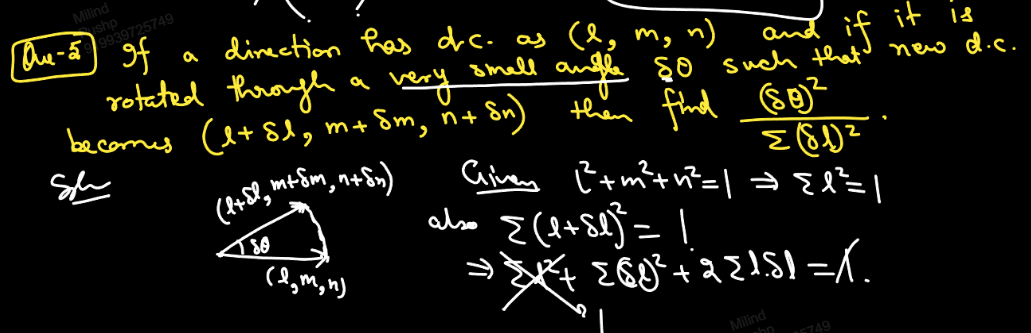 Milind
9939725749
Qu-5 If a direction has d.c. as (l, m, n) and if it is
rotated through a very small angle δθ such that new d.c.
becomes (l+δl, m+δm, n+δn) then find (δθ)²/Σ(δl)².
Soln
(l+δl, m+δm, n+δn)
δθ
(l, m, n)
Given l²+m²+n²=1 ⇒ Σl²=1
also Σ(l+δl)² = 1.
⇒ Σl² + Σ(δl)² + 2Σl.δl = 1.
1
Milind